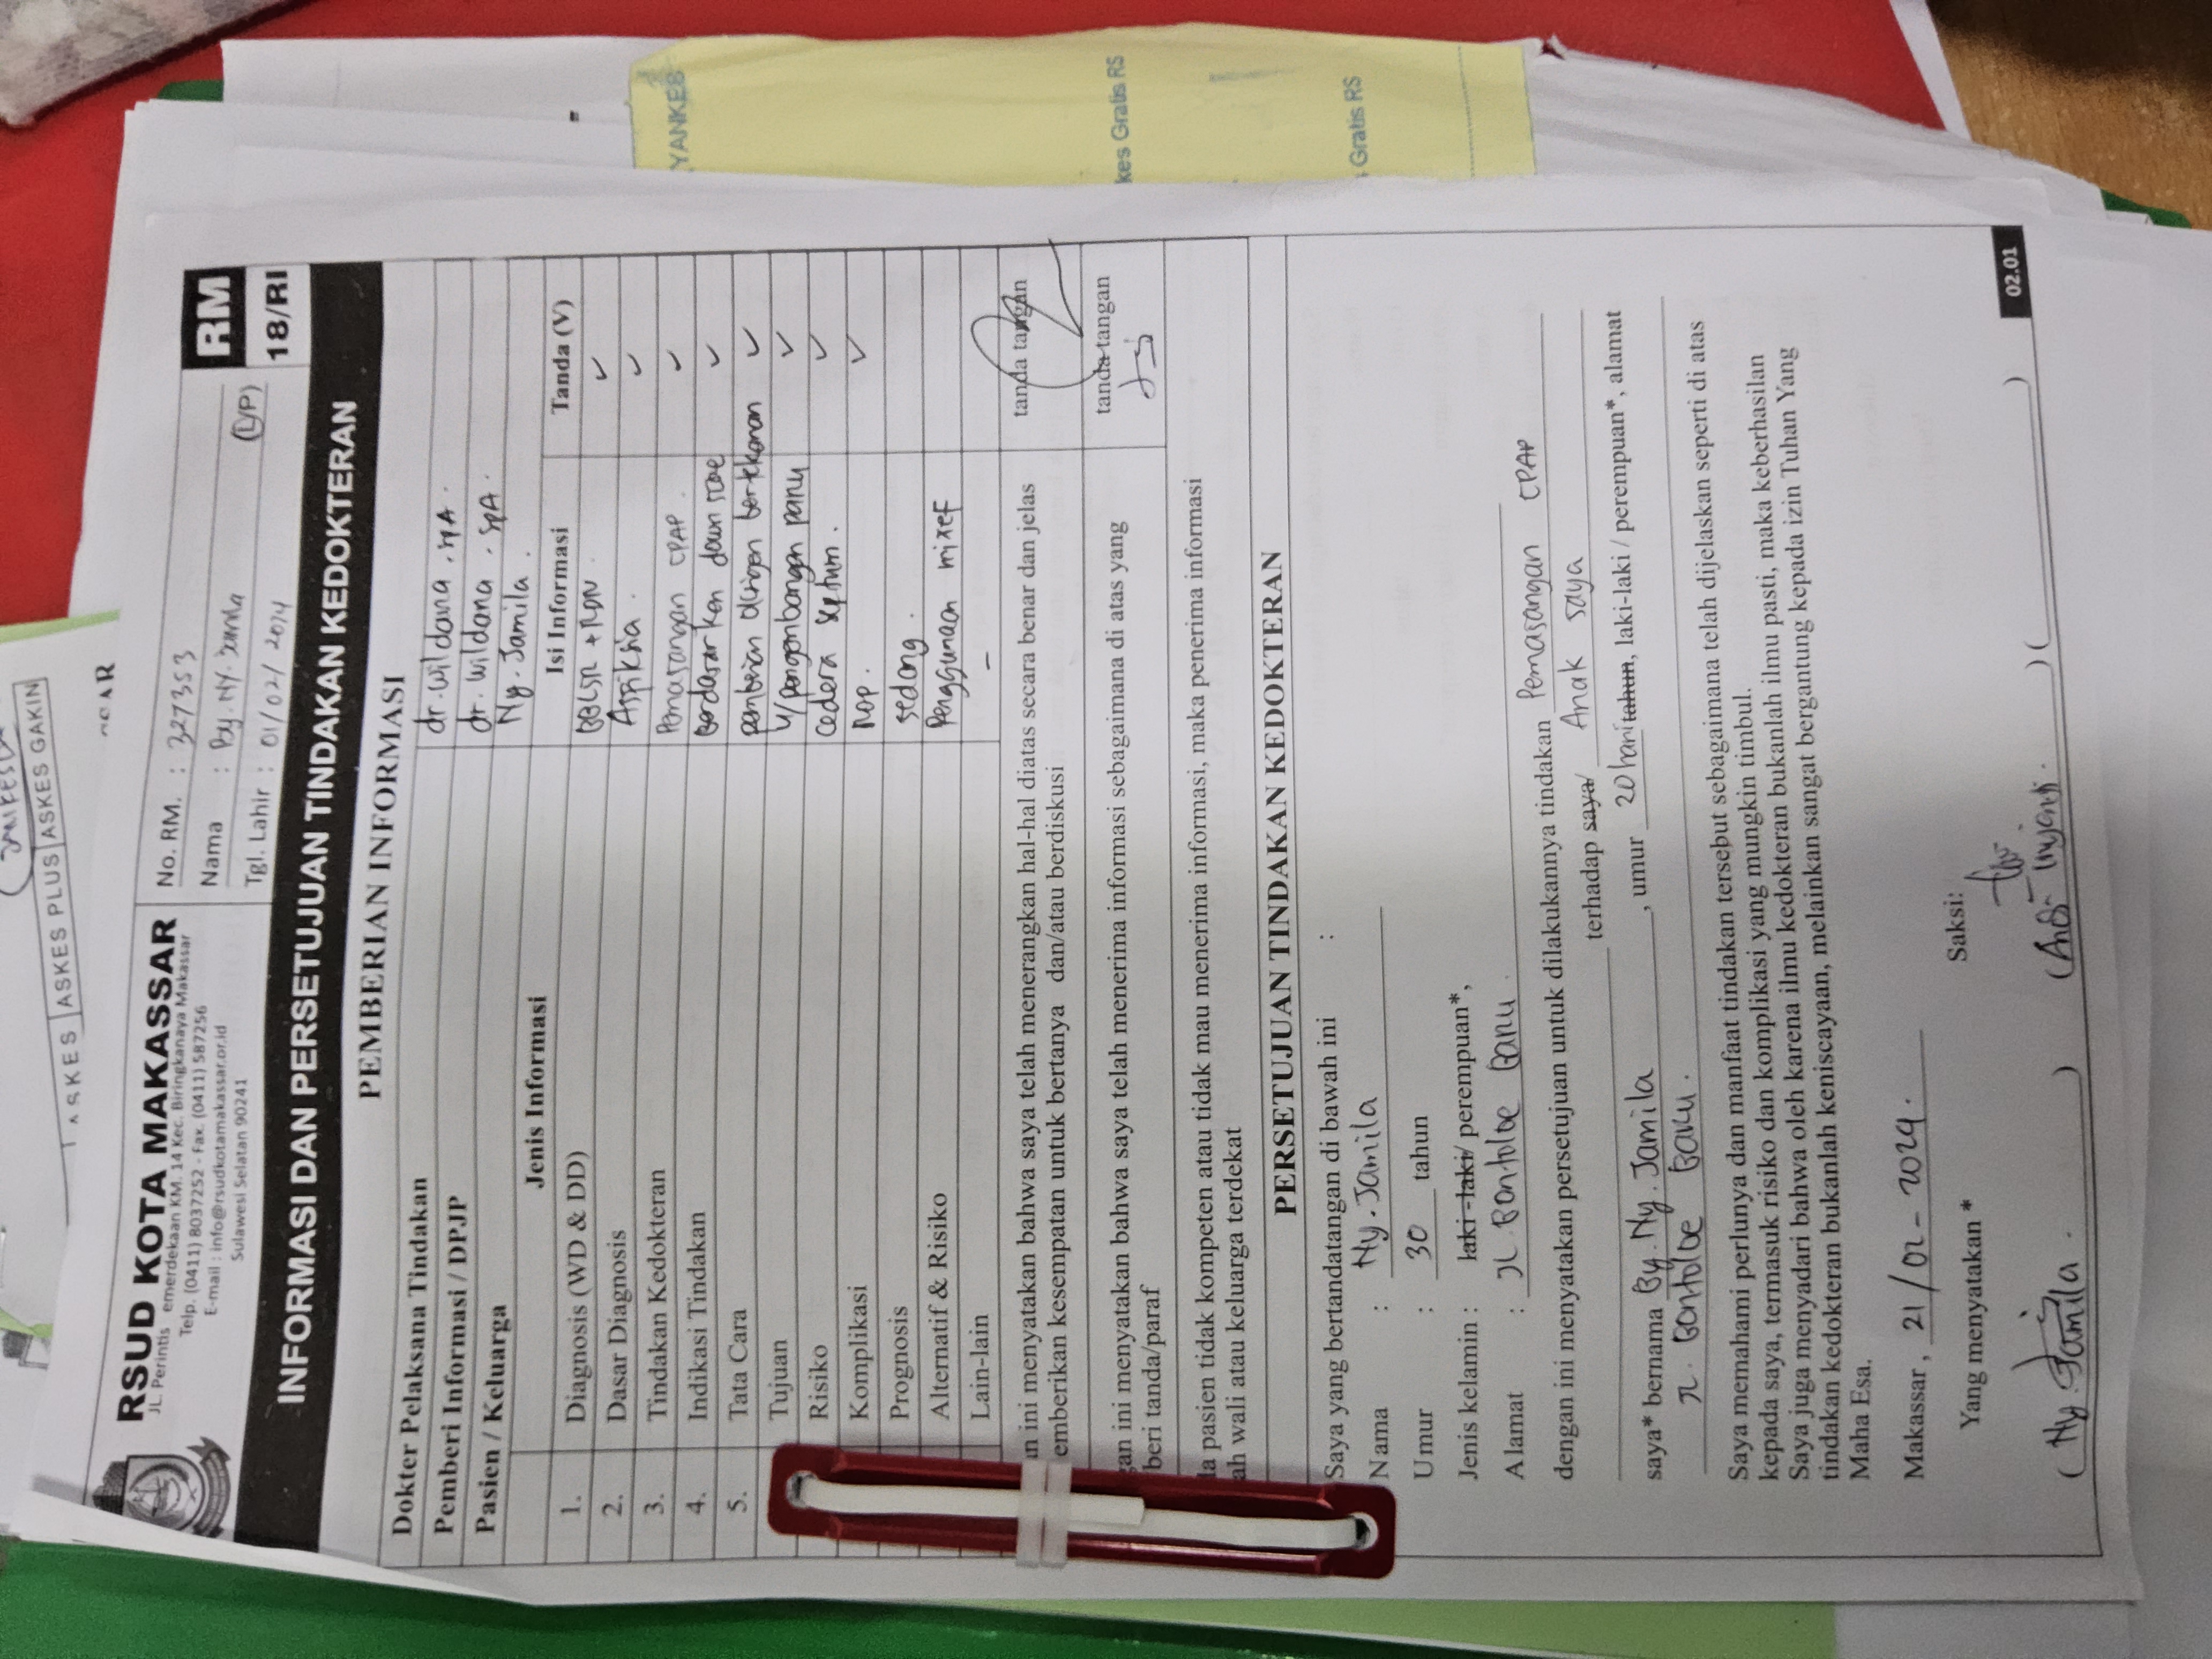 ASKES ASKES PLUS ASKES GAKIN
RSUD KOTA MAKASSAR
JL. Perintis emerdekaan KM. 14 Kec. Biringkanaya Makassar
Telp. (0411) 8037252 - Fax. (0411) 587256
E-mail : info@rsudkotamakassar.or.id
Sulawesi Selatan 90241
No. RM. : 327353
Nama : By. NY. Jamila (L/P)
Tgl. Lahir : 01/02/2024
RM
18/RI
INFORMASI DAN PERSETUJUAN TINDAKAN KEDOKTERAN
PEMBERIAN INFORMASI
Dokter Pelaksana Tindakan dr. wildana . SpA .
Pemberi Informasi / DPJP dr. wildana . SpA .
Pasien / Keluarga Ny. Jamila .
Jenis Informasi Isi Informasi Tanda (V)
1. Diagnosis (WD & DD) BBLSR + RDN ✓
2. Dasar Diagnosis Asfiksia . ✓
3. Tindakan Kedokteran Pemasangan CPAP . ✓
4. Indikasi Tindakan Berdasarkan down score ✓
5. Tata Cara pemberian oksigen bertekanan ✓
Tujuan u/pengembangan paru ✓
Risiko cedera septum . ✓
Komplikasi ROP . ✓
Prognosis sedang .
Alternatif & Risiko Penggunaan
Lain-lain –
an ini menyatakan bahwa saya telah menerangkan hal-hal diatas secara benar dan jelas tanda tangan
emberikan kesempatan untuk bertanya dan/atau berdiskusi
gan ini menyatakan bahwa saya telah menerima informasi sebagaimana di atas yang tanda tangan
beri tanda/paraf
la pasien tidak kompeten atau tidak mau menerima informasi, maka penerima informasi
ah wali atau keluarga terdekat
PERSETUJUAN TINDAKAN KEDOKTERAN
Saya yang bertandatangan di bawah ini :
Nama : Ny. Jamila
Umur : 30 tahun
Jenis kelamin : laki -laki/ perempuan*,
Alamat : Jl. Bontoloe Baru .
dengan ini menyatakan persetujuan untuk dilakukannya tindakan Pemasangan CPAP
terhadap saya/ Anak saya
saya* bernama By. Ny. Jamila , umur 20 hari tahun, laki-laki / perempuan*, alamat
Jl. Bontoloe Baru .
Saya memahami perlunya dan manfaat tindakan tersebut sebagaimana telah dijelaskan seperti di atas
kepada saya, termasuk risiko dan komplikasi yang mungkin timbul.
Saya juga menyadari bahwa oleh karena ilmu kedokteran bukanlah ilmu pasti, maka keberhasilan
tindakan kedokteran bukanlah keniscayaan, melainkan sangat bergantung kepada izin Tuhan Yang
Maha Esa.
Makassar , 21/02 - 2024 .
Yang menyatakan * Saksi:
( Ny. Jamila . ) ( ) ( )
02.01
YANKES
kes Gratis RS
Gratis RS